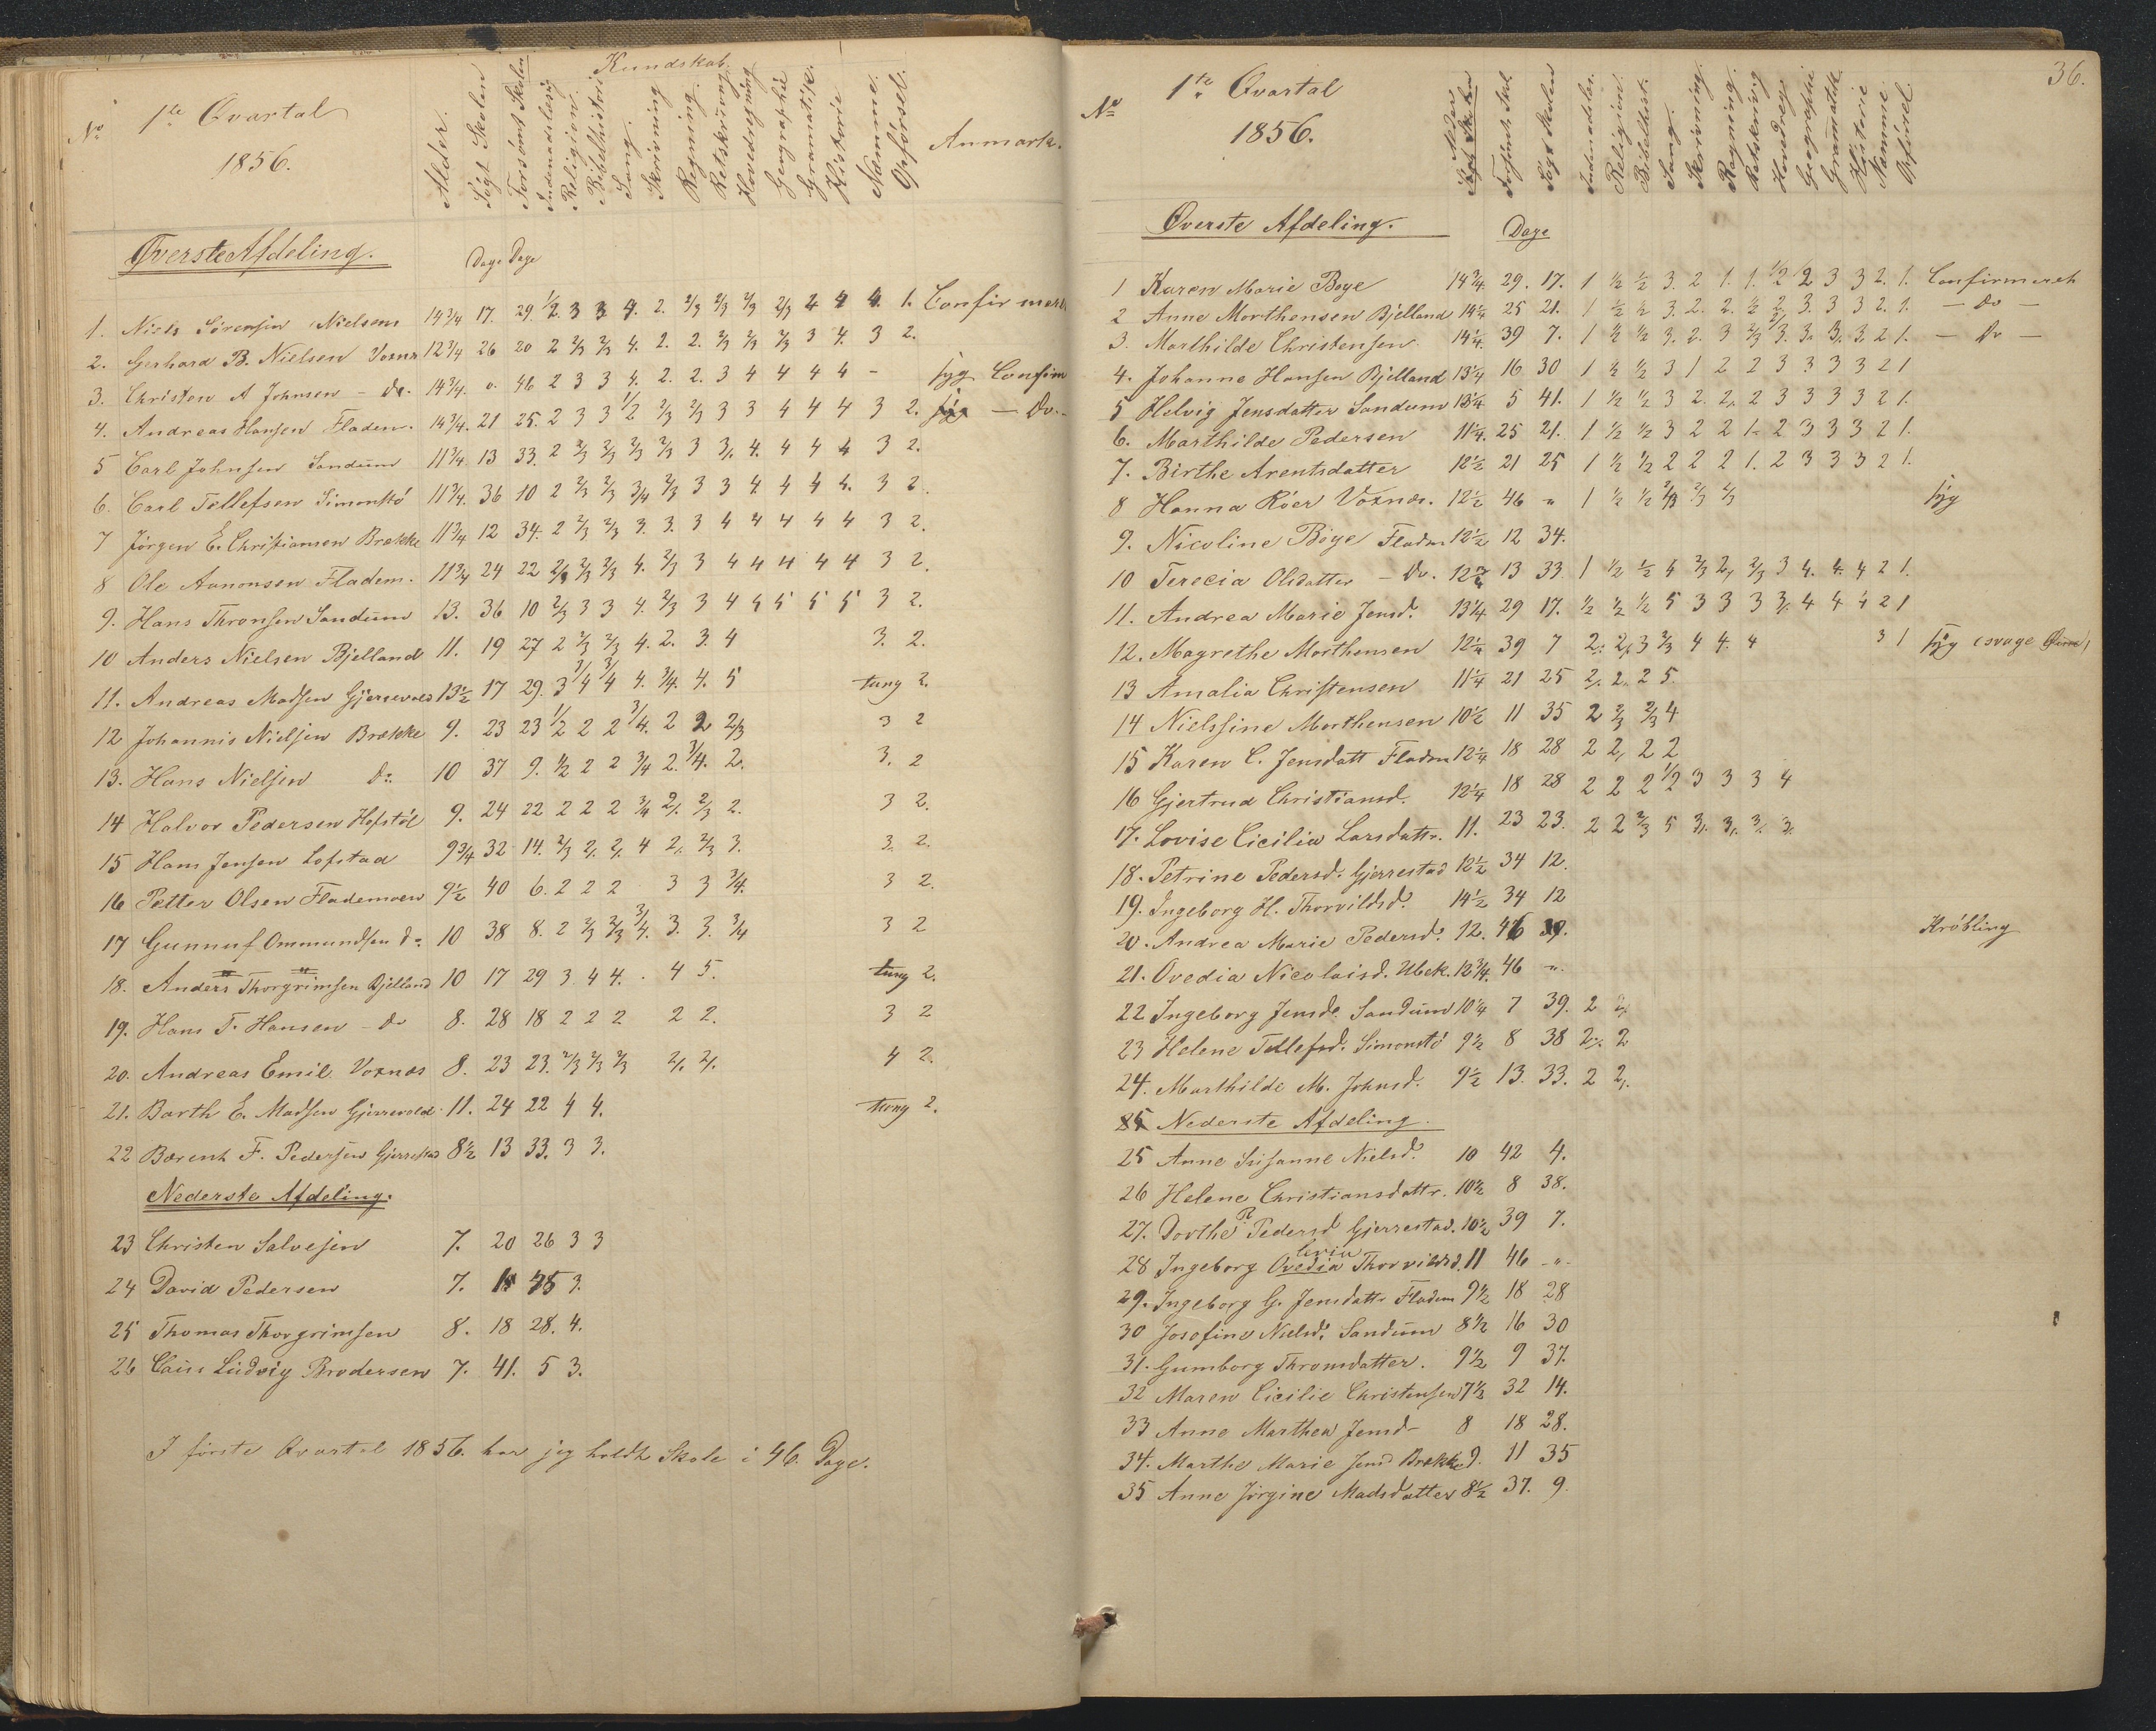 Kundskab.
No 1te Qvartal Alder. Søgt Skolen Forsømt Skolen Indenadslæsn Religion. Bibelhistorie Sang. Skrivning Regning. Retskrivning Hovedregning Geographie Gramatik. Historie Nemme. Opførsel. Anmærk.
1856.
Øverste Afdeling. Dage Dage
1. Niels Sørensen Nielsens 14 3/4 17. 29. 1/2. 3 3 4. 2. 2/3 2/3 2/3 2/3 2 4 4. 1. Confirmeret
2. Gerhard B. Nielsen Voxnæs 12 3/4 26 20 2 2/3 2/3 4. 2. 2. 2/3 2/3 2/3 3 4. 3 2.
3. Christen A Johnsen - do. 14 3/4. 0. 46 2 3 3 4. 2. 2. 3 4 4 4 4 - syg Confirm
4. Andreas Hansen Fladem. 14 3/4. 21 25. 2 3 3 1/2 2/3 2/3 3 3 4 4 4 3 2. syg - Do. -
5 Carl Johnsen Sandum 11 3/4. 13 33. 2 2/3 2/3 2/3 2/3 3 3/. 4. 4 4 4 3 2.
6. Carl Tellefsen Simonstö 11 3/4. 36 10 2 2/3 2/3 3/4 2/3 3 3 4 4 4 4. 3 2.
7 Jörgen E. Christiansen Brekke 11 3/4 12 34. 2 2/3 2/3 3. 3. 3 4 4 4 4 4 3 2.
8 Ole Aanonsen Fladem. 11 3/4 24 22 2/3 2/3 2/3 4. 2/3 3 4 4 4 4 4 3 2.
9. Hans Thronsen Sandum 13. 36 10 2/3 3 3 4. 2/3 3 4 5 5 5 5 3 2.
10 Anders Nielsen Bjelland 11. 19 27 2 2/3 2/3 4. 2. 3. 4 3. 2.
11. Andreas Madsen 13 1/2 17 29. 3 3/4 3/4 4. 3/4. 4. 5 tung 2.
12 Johannis Nielsen Brekke 9. 23 23 1/2 2 2 3/4. 2 2 2/3 3 2
13. Hans Nielsen do. 10 37 9. 1/2 2 2 3/4 2. 3/4. 2. 3. 2
14 Halvor Pedersen Hofstöl 9. 24 22 2 2 2 3/4 2/. 2/3 2. 3 2.
15 Hans Jensen Lofstad 9 3/4 32 14. 2/3 2/. 2/. 4 2/. 2/3 3. 3. 2.
16 Petter Olsen Flademoen 9 1/2 40 6. 2 2 2 3 3 3/4. 3 2.
17 Gunnuf Ommundsen do. 10 38 8. 2 2/3 2/3 3/4. 3. 3. 3/4 3 2
18. Anders Thorgrimsen Bjelland 10 17 29 3 4 4. 4 5. tung 2.
19. Hans T. Hansen - do 8. 28 18 2 2 2 2 2. 3 2
20. Andreas Emil Voxnæs 8. 23 23. 2/3 2/3 2/3 2/. 2/. 4 2.
21. Barth E. Madsen 11. 24 22 4 4. tung 2.
22 Berent F. Pedersen Gjerrestad 8 1/2 13 33. 3 3.
Nederste Afdeling.
23 Christen Salvesen 7. 20 26 3 3
24 David Pedersen 7. 3.
25 Thomas Thorgrimsen 8. 18 28. 4.
26 Ludvig Brodersen 7. 41. 5 3.
I første Qvartal 1856. har jeg holdt Skole i 46. Dage.
36.
No 1te Qvartal Alder Søgt Skolen Forsømt Skol Søgt Skolen Indenadslæs. Religion. Bibelhist. Sang. Skrivning. Regning. Retskrivnig Hovedreg. Geographie Gramatik. Historie Nemme Opførsel.
1856.
Øverste Afdeling. Dage
1 Karen Marie Boye 14 3/4 29. 17. 1 1/2 1/2 3. 2 1. 1. 1/2 2 3 3 2. 1. Confirmereh
2 Anne Morthensen Bjelland 14 1/4 25 21. 1 1/2 1/2 3. 2. 2. 1/2 2. 3. 3 3 2. 1. - Do -
3. Marthilde Christensen. 14 1/4. 39 7. 1 1/2 1/2 3. 2. 3 2/3 2/3. 3. 3. 3. 2 1. - Do -
4. Johanne Hansen Bjelland 13 1/4 16 30 1 1/2 1/2 3 1 2 2 3 3 3 3 2 1
5 Helvig Jensdatter Sandum 13 1/4 5 41. 1 1/2 1/2 3 2. 2. 2 3 3 3 3 2 1.
6. Marthilde Pedersen 11 1/4. 25 21. 1 1/2 1/2 3 2 2 1. 2 3 3 3 2 1.
7. Birthe Arentsdatter 12 1/2 21 25 1 1/2 1/2 2 2 2 1. 2 3 3 3 2 1.
8 Hanna Röer Voxnæs. 12 1/2 46 " 1 1/2 1/2 2/3 2/3 2/3 syg
9. Nicoline Böye Fladm 12 1/2 12 34.
10 Terecia Olsdatter - Do. 12 3/4 13 33 1 1/2 1/2 4 2/3 2/. 2/3 3 4. 4. 4 2 1.
11. Andrea Marie Jensd. 13 1/4 29 17. 1/2 1/2 1/2 5 3 3 3 3/. 4 4 4 2 1
12. Magrethe Morthensen 12 1/4 39 7 2. 2/. 3 2/3 4 4. 4 3 1 syg (svage Øine)
13 Amalia Christensen 11 1/4 21 25 2/. 2. 2 5.
14 Nielssine Morthensen 10 1/2 11 35 2 2/3 2/3 4
15 Karen C. Jensdatt Fladm 12 1/4 18 28 2 2, 2 2
16 Gjertrud Christiansd. 12 1/4 18 28 2 2 2 1/2 3 3 3 4
17. Lovise Cicilia Larsdattr. 11. 23 23. 2 2 2/3 5 3/. 3/. 3/. 3/.
18. Petrine Pedersd. Gjerrestad 12 1/2 34 12.
19. Ingeborg H. Thorvildsd. 14 1/2 34 12
20. Andrea Marie Pedersd. 12. 46 Kröbling
21. Ovedia Nicolaisd. Ubek. 13 3/4. 46 ".
22 Ingeborg Jensd. Sandum 10 1/4 7 39. 2 2/.
23 Helene Tellefsd. Simonstö 9 1/2 8 38 2/. 2
24. Marthilde M. Johnsd. 9 1/2 13. 33. 2 2/.
Nederste Afdeling.
25 Anne Susanne Nielsd. 10 42 4.
26 Helene Christiansdattr. 10 1/2 8 38.
27. Dorthe P. Pedersd Gjerrestad. 10 1/2 39 7.
28 Ingeborg Ovedia Thorvildsd. 11 46 - " -
29. Ingeborg G. Jensdattr Fladem 9 1/2 18 28
30 Josefine Nielsd. Sandum 8 1/2 16 30
31. Gumborg Thronsdatter. 9 1/2 9 37.
32 Maren Cicilie Christensen 7 1/2 32 14.
33 Anne Marthea Jensd - 8 18 28.
34. Marthe Marie Jensd Brekke 9. 11 35
35 Anne Jörgine Madsdatter 8 1/2 37. 9.